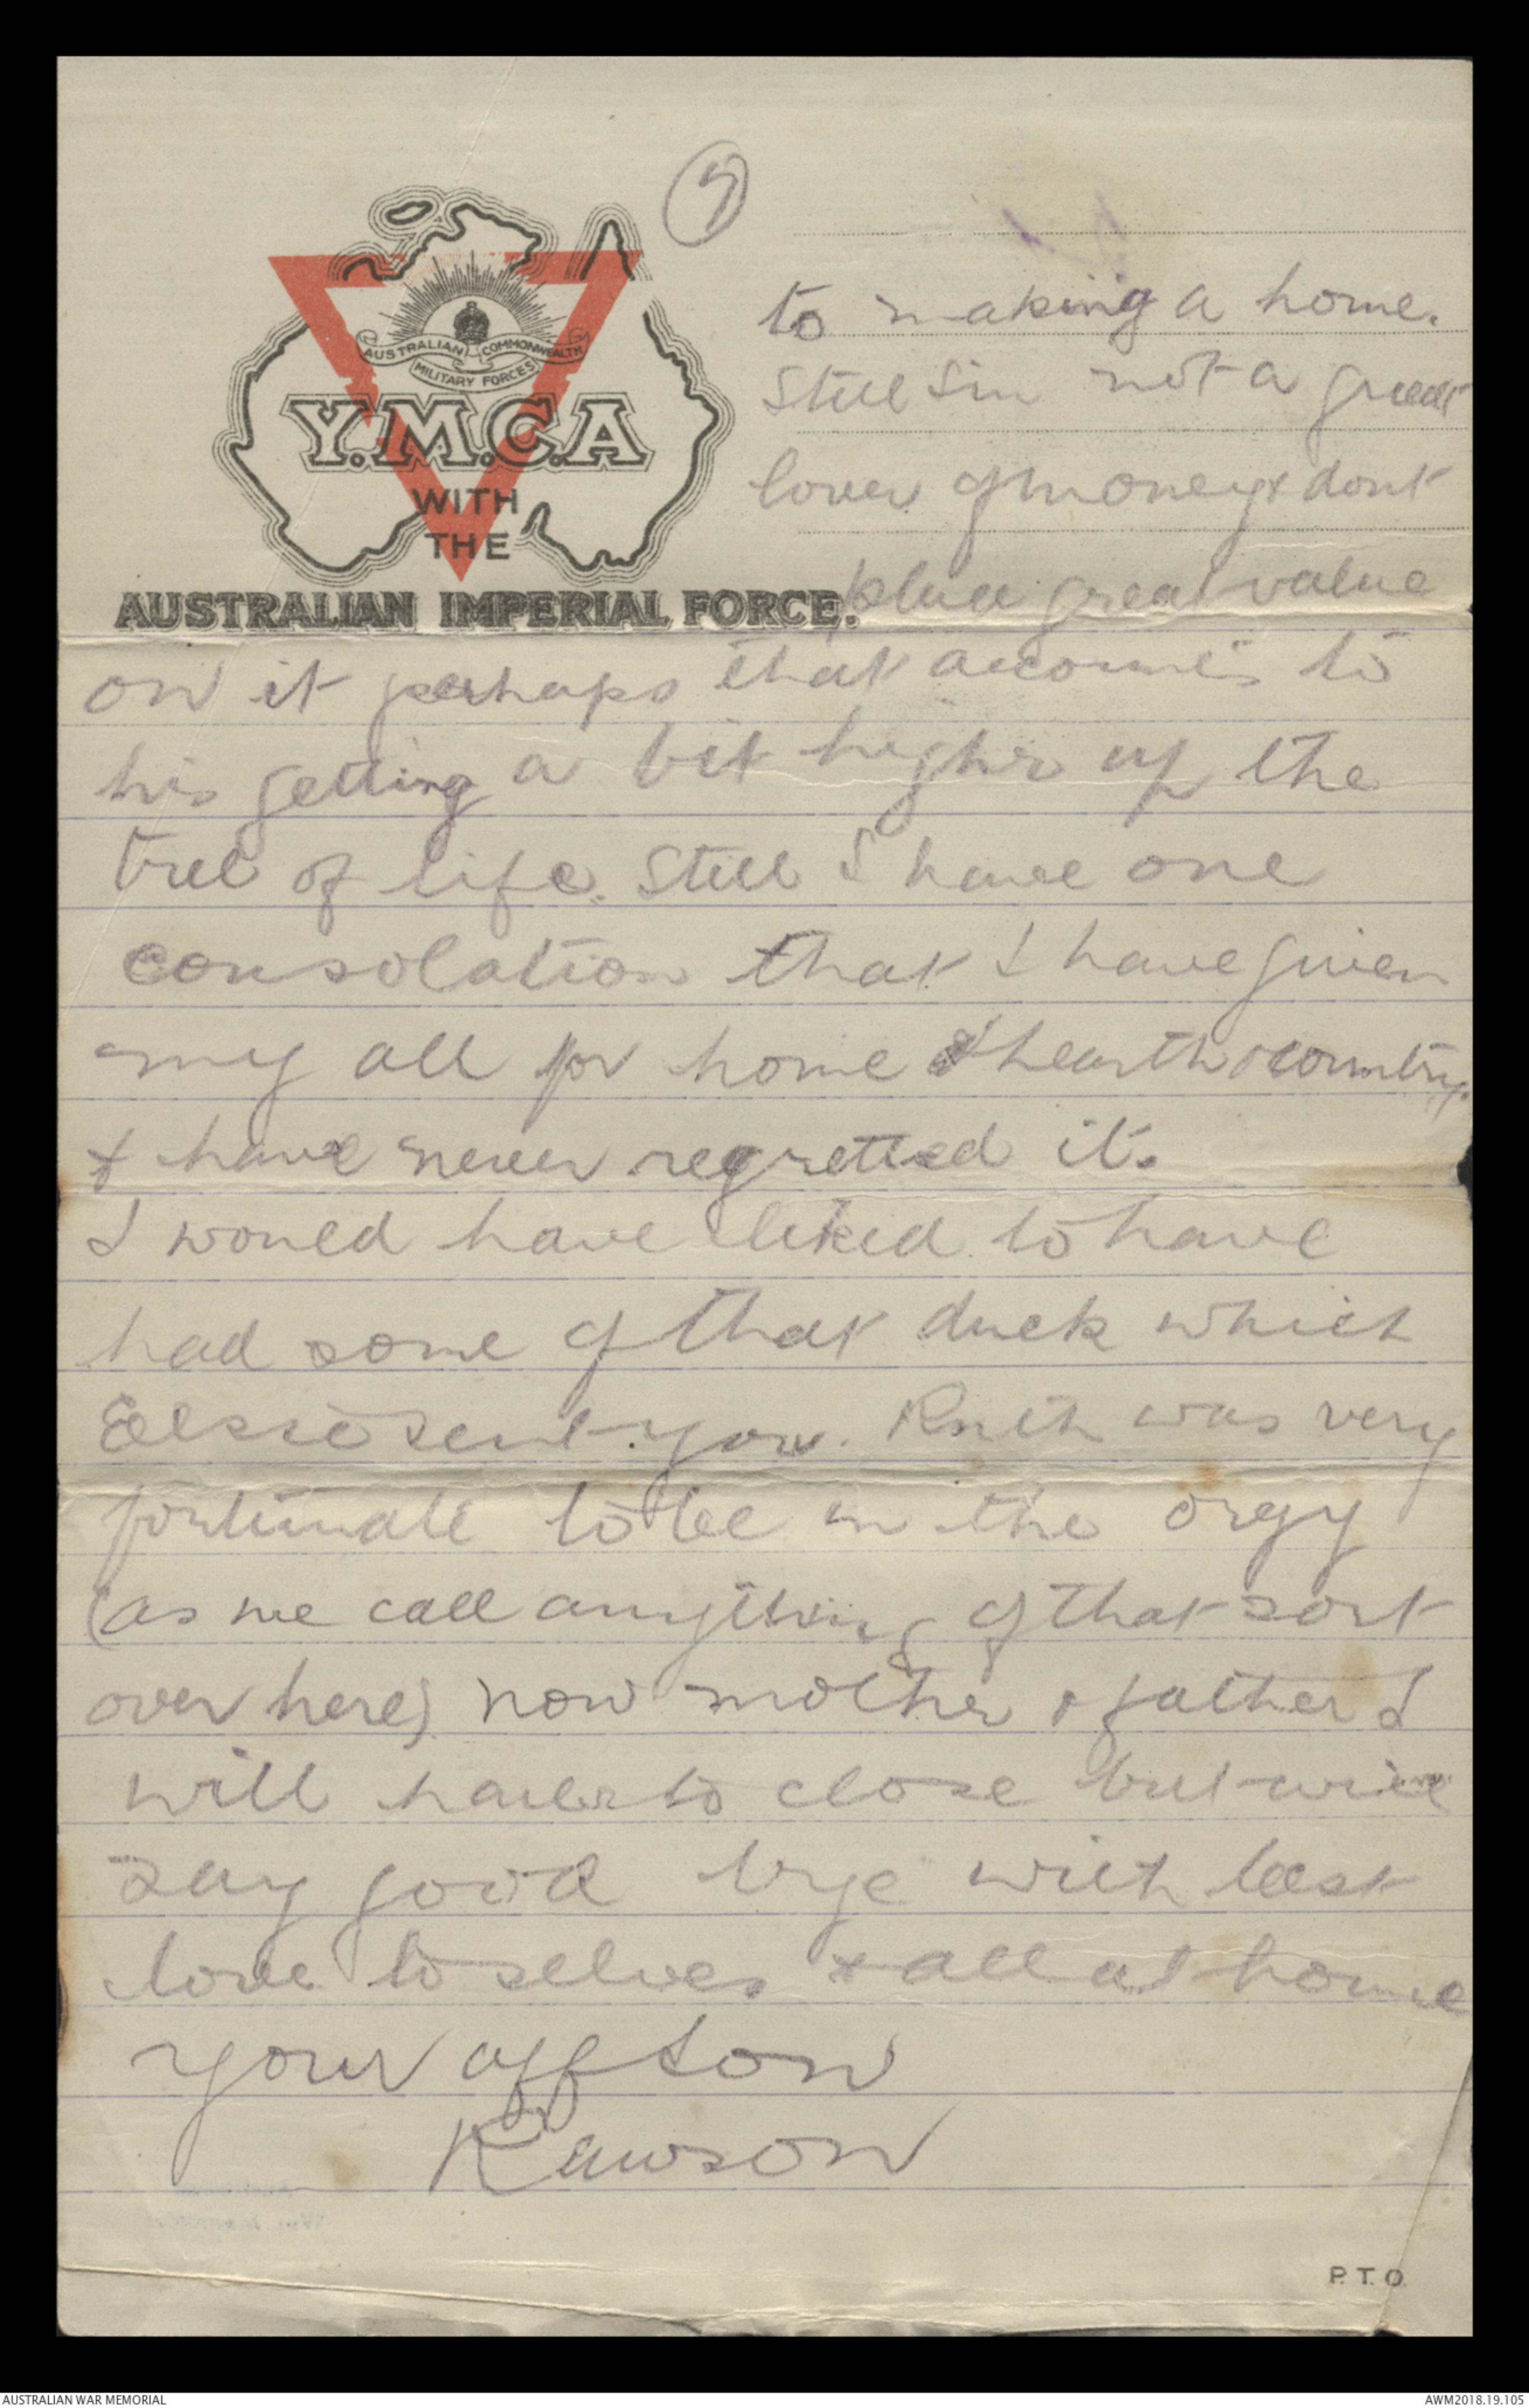 9
AUSTRALIAN COMMONWEALTH
MILITARY FORCES
Y.M.C.A
WITH
THE
AUSTRALIAN IMPERIAL FORCE.
to making a home.
Still Im not a great
lover of money & dont
place great value
on it perhaps that accounts to
his getting a bit higher up the
tree of life. Still I have one
consolation that I have given
my all for home & hearth & country.
& have never regretted it.
I would have liked to have
had some of that duck which
Elsie sent you. Ruth was very
fortunate to be in the orgy
(as we call anything of that sort
over here) now mother & father I
will have to close but will
say good bye with best
love to selves & all at home
your aff son
Rawson
P.T.O.
AUSTRALIAN WAR MEMORIAL
AWM2018.19.105